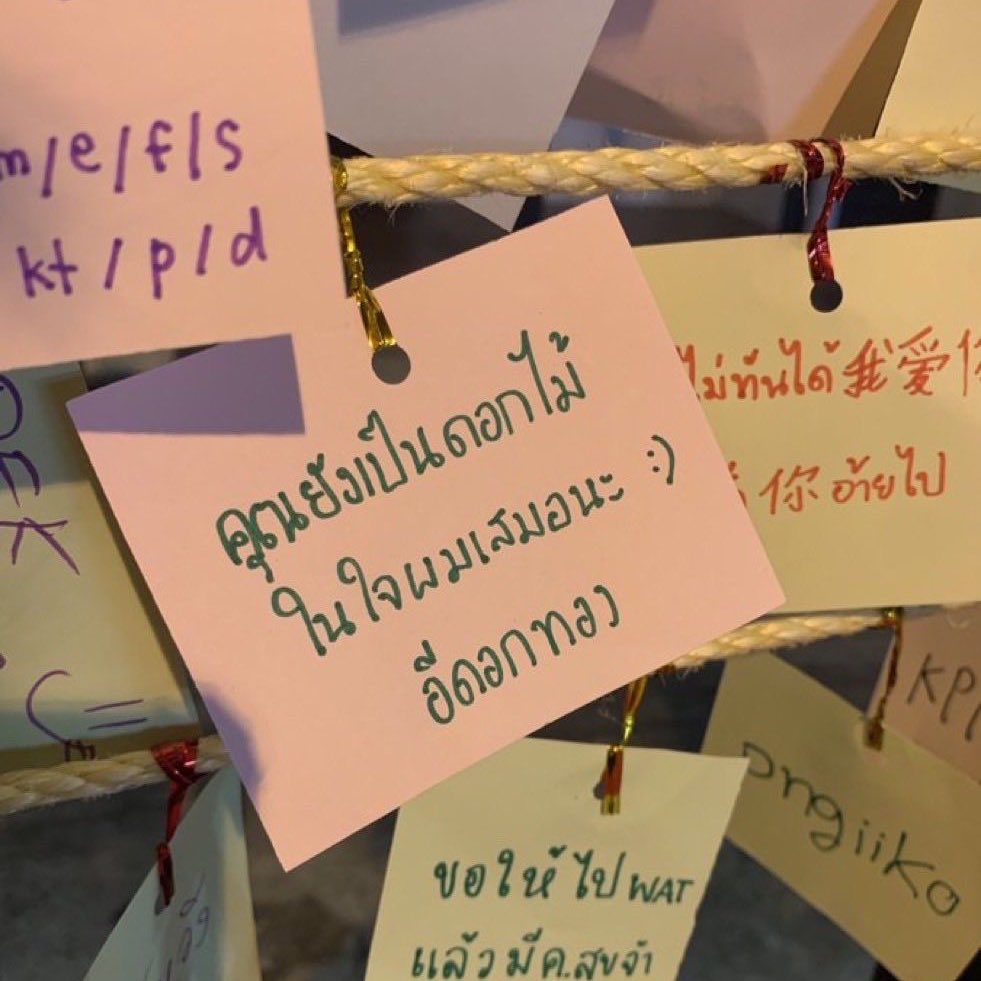 m/e/f/s
kt/p/d
คุณยังเป็นดอกไม้
ในใจผมเสมอนะ :)
อีดอกทอง
ไม่ทันได้ 我爱你
你 อ้ายไป
ขอให้ไป WAT
แล้วมีค.สุขจ้า
Dngiiko